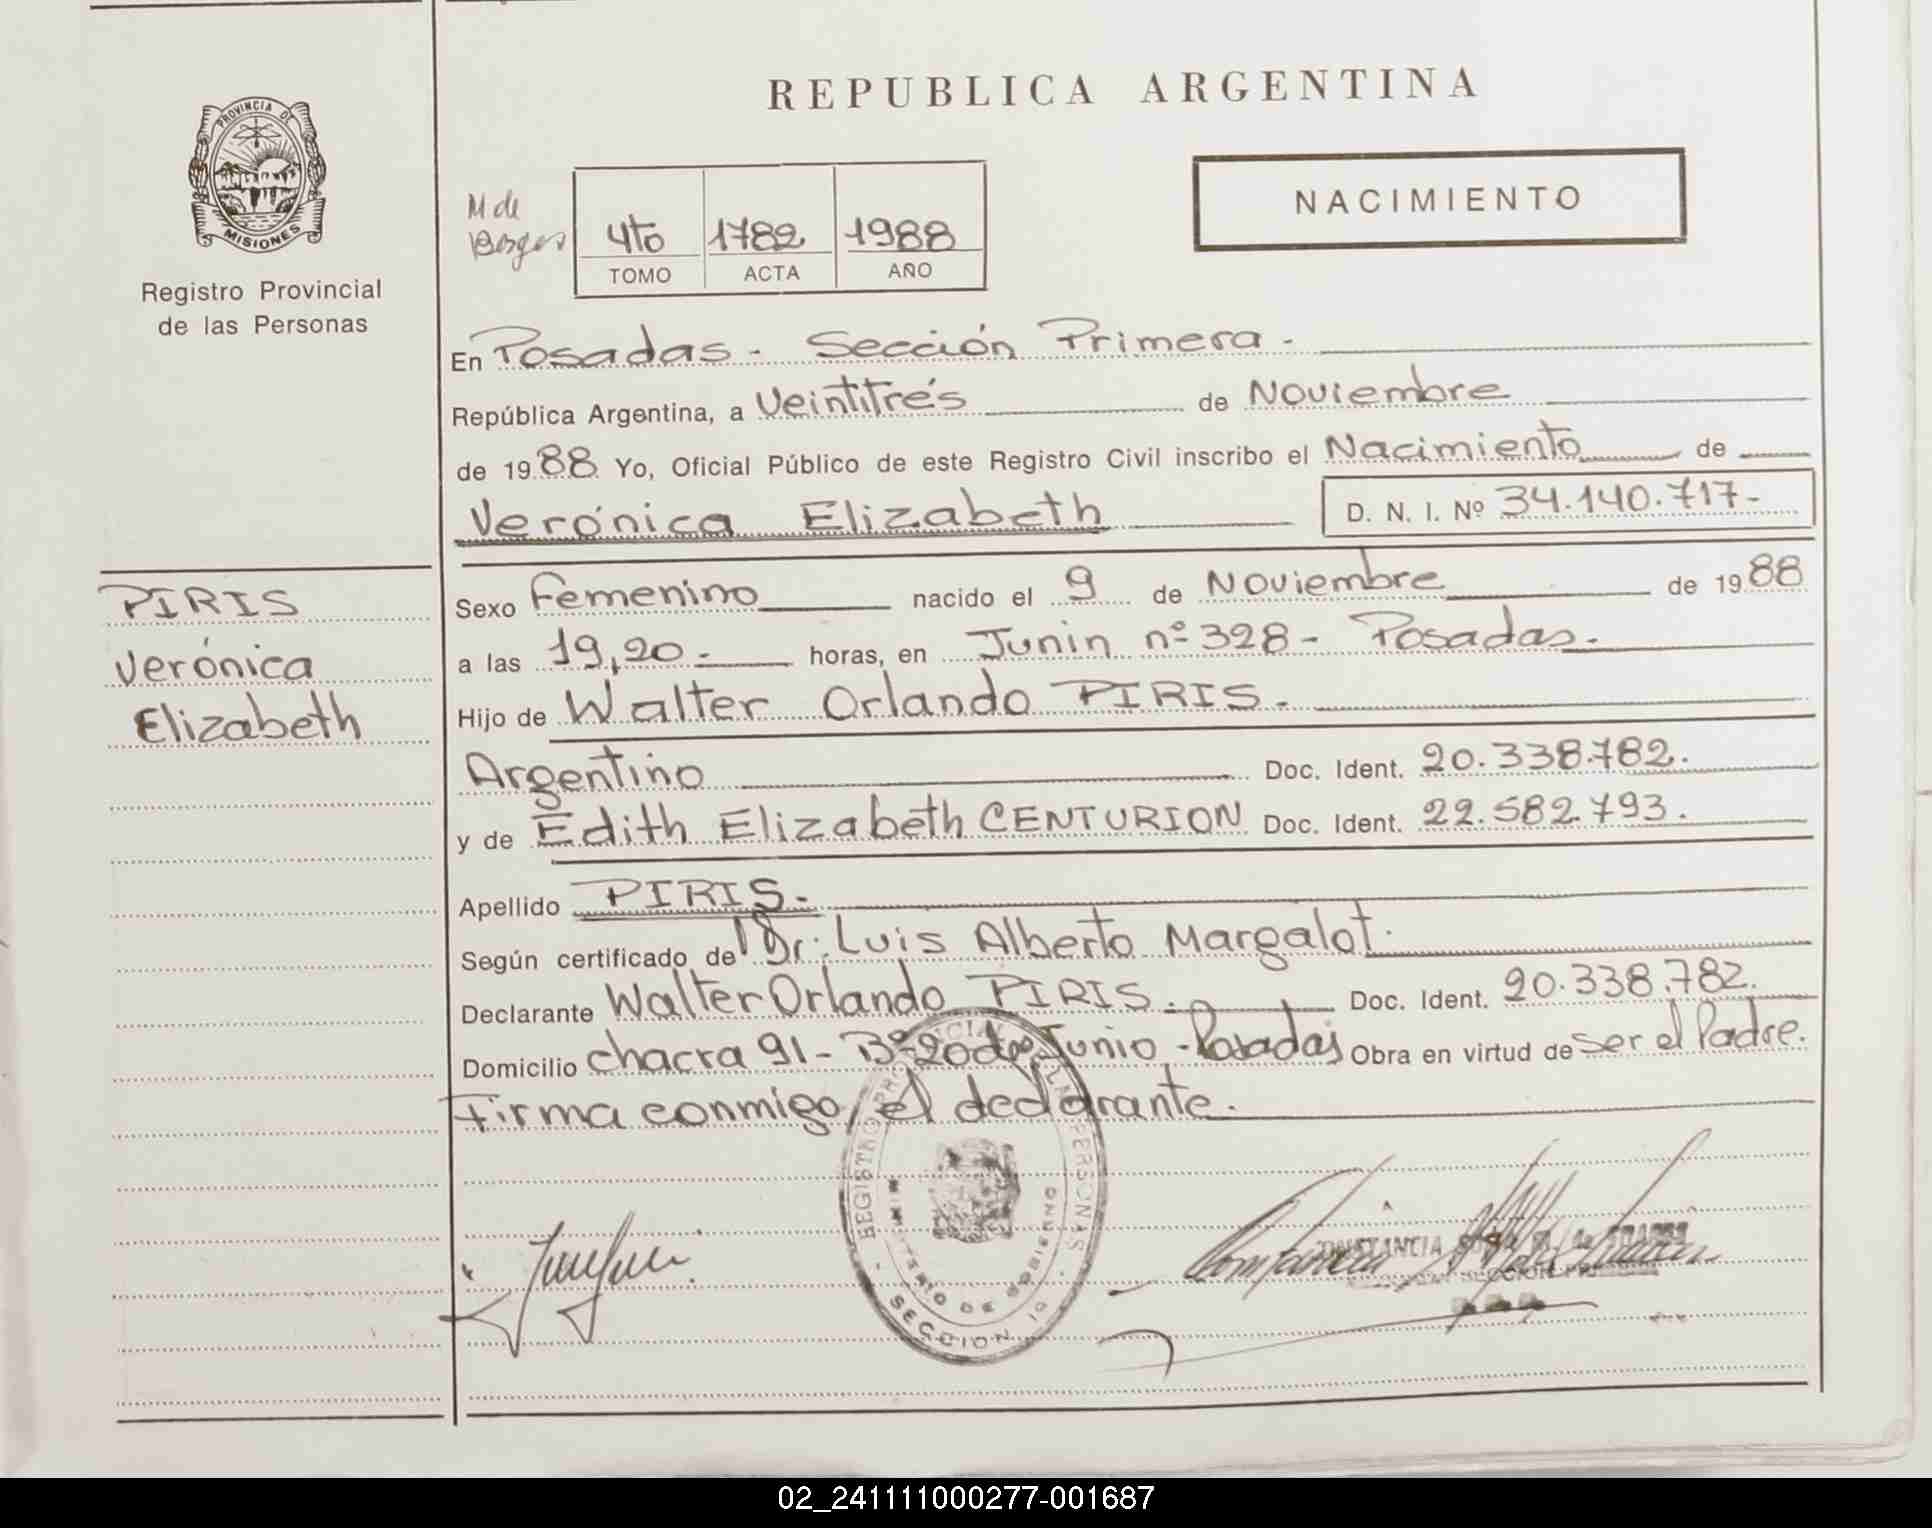 REPUBLICA ARGENTINA
PROVINCIA DE
MISIONES
Registro Provincial
de las Personas
NACIMIENTO
M de
4to 1782 1988
TOMO ACTA AÑO
En Posadas - Sección Primera -
República Argentina, a Veintitrés de Noviembre
de 1988 Yo, Oficial Público de este Registro Civil inscribo el Nacimiento de
Verónica Elizabeth D. N. I. Nº 34.140.717-
PIRIS
Verónica
Elizabeth
Sexo Femenino nacido el 9 de Noviembre de 1988
a las 19,20 - horas, en Junin nº 328 - Posadas.
Hijo de Walter Orlando PIRIS.
Argentino Doc. Ident. 20.338.782.
y de Edith Elizabeth CENTURION Doc. Ident. 22.582.793.
Apellido PIRIS.
Según certificado de Dr. Luis Alberto Margalot.
Declarante Walter Orlando PIRIS. Doc. Ident. 20.338.782.
Domicilio chacra 91 - Bº 20 de Junio - Posadas Obra en virtud de ser el Padre.
Firma conmigo, el declarante.
REGISTRO PROVINCIAL DE LAS PERSONAS
MINISTERIO DE GOBIERNO
SECCION 1º
CONSTANCIA
02_241111000277-001687